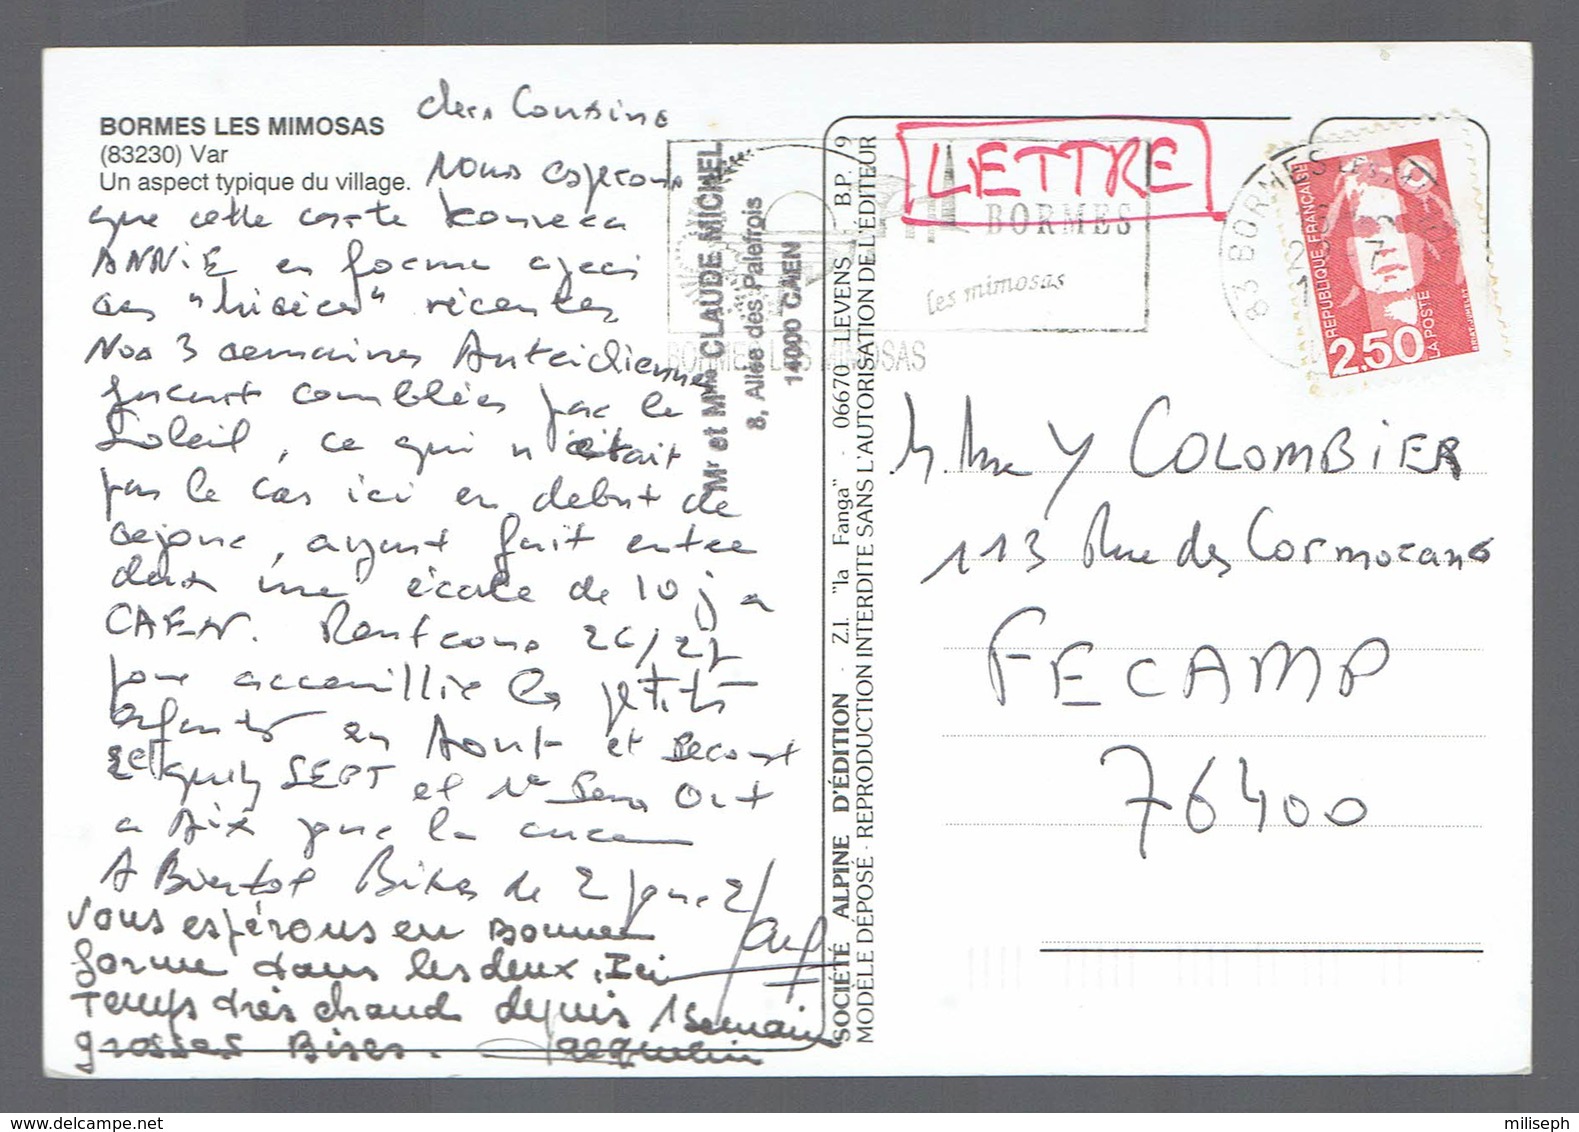 BORMES LES MIMOSAS
(83230) Var
Un aspect typique du village.
chers Cousins
nous espérons
que cette carte trouvera
ANNIE en forme après
ses récentes
Nos 3 semaines
furent comblées par le
Soleil, ce qui n'était
pas le cas ici en début de
séjour, ayant fait entre
deux une école de 10 j a
CAEN. Rentrons 26/27
pour accueillir les petits
enfants en Aout et
SEPT et 1e Sem Oct
a Aix pour la
A Bientot Bises de 2 pour 2
vous espérons en Bonne
forme tous les deux, Ici
Temps très chaud depuis 1 semaine
grosses Bises. Jacqueline
Mr et Mme CLAUDE MICHEL
8, Allée des Palefrois
14000 CAEN
BORMES
les mimosas
BORMES LES MIMOSAS
SOCIÉTÉ ALPINE D'ÉDITION · Z.I. "la Fanga" · 06670 LEVENS B.P. 9
MODÈLE DÉPOSÉ · REPRODUCTION INTERDITE SANS L'AUTORISATION DE L'ÉDITEUR
LETTRE
83 BORMES LES MIMOSAS
REPUBLIQUE FRANÇAISE
2,50
LA POSTE
M. Mme Y COLOMBIER
113 Rue des Cormorans
FECAMP
76400
miliseph